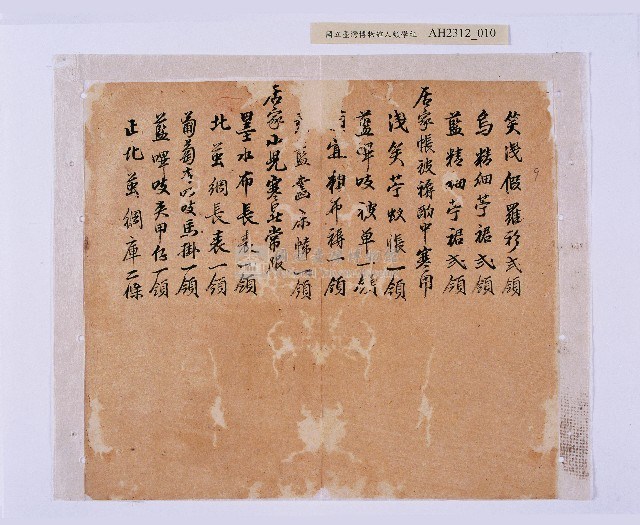 國立臺灣博物館人類學組 AH2312_010
笑淺假羅衫弍領
烏粘細苧裙弍領
藍精細苧裙弍領
居家帳被褥酌中寒用
淺笑苧蚊帳一領
藍嗶吱被单一領
宜粗布褥一領
藍 一領
居家小兒寒暑常服
墨水布長表一領
北茧綢長表一領
葡萄 吱馬掛一領
藍嗶吱夾甲仔一領
正北茧綢庫二條